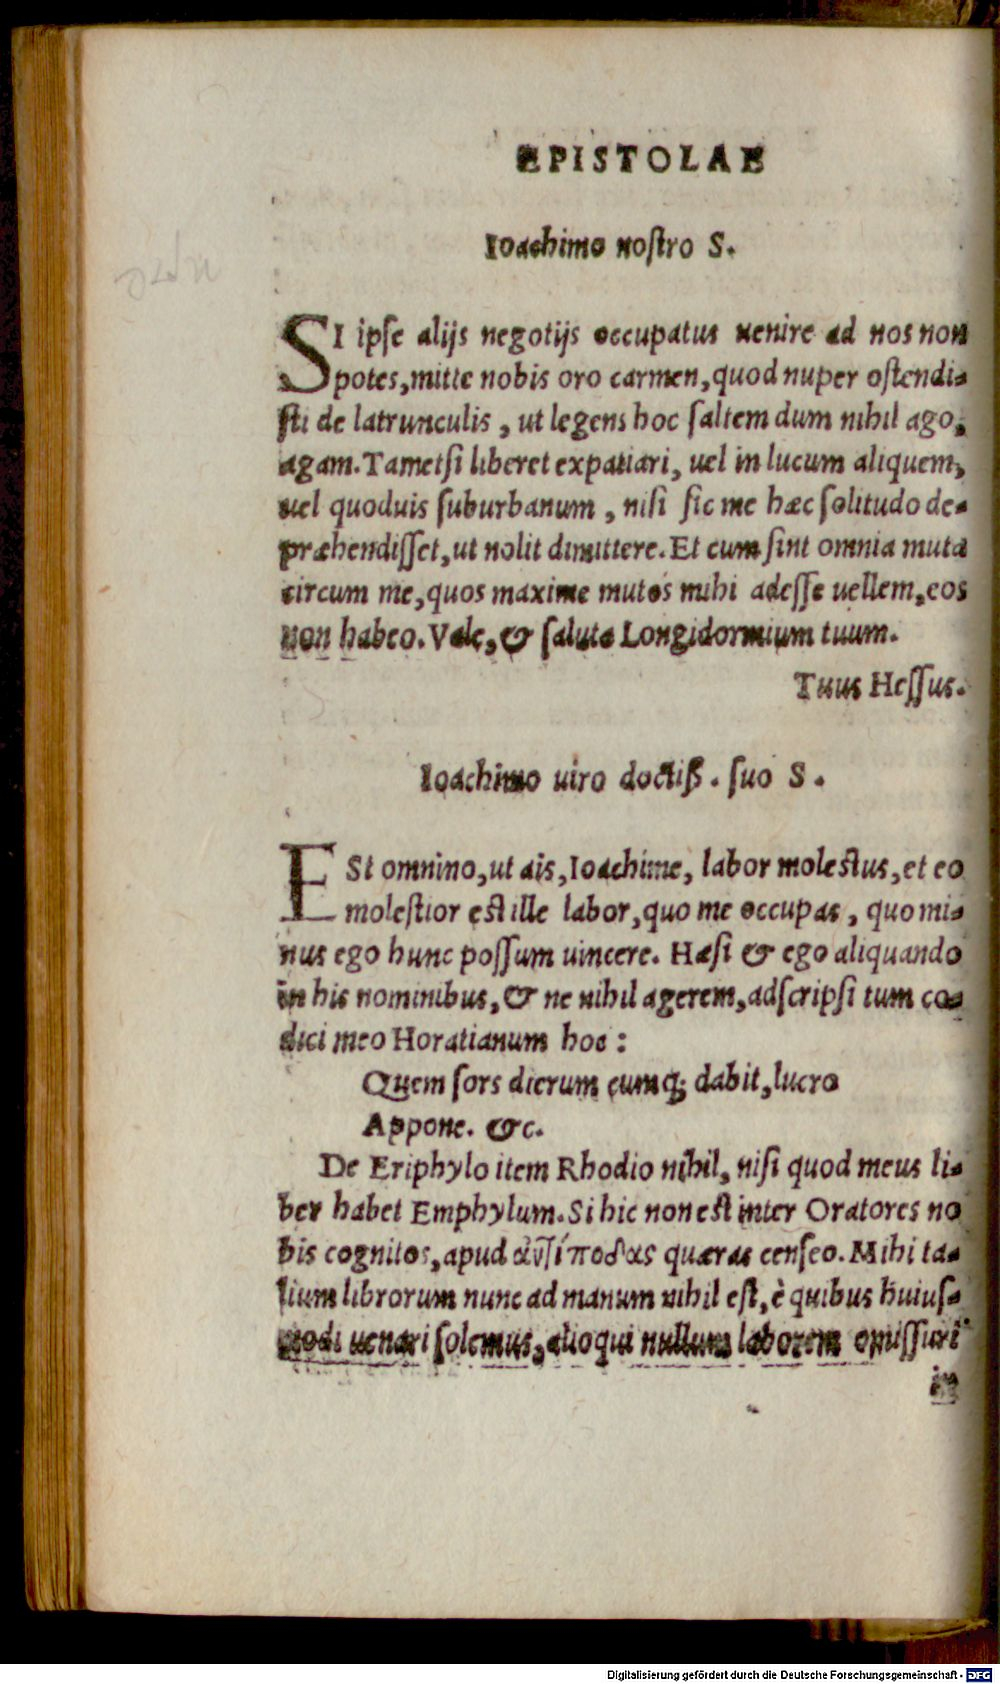 EPISTOLAE
Ioachimo nostro S.
SI ipse alijs negotijs occupatus uenire ad nos non
potes, mitte nobis oro carmen, quod nuper ostendi-
sti de latrunculis, ut legens hoc saltem dum nihil ago,
agam. Tametsi liberet expatiari, uel in lucum aliquem,
uel quoduis suburbanum, nisi sic me hæc solitudo de-
præhendisset, ut nolit dimittere. Et cum sint omnia muta
circum me, quos maxime mutos mihi adesse uellem, eos
non habeo. Vale, & saluta Longidormium tuum.
Tuus Hessus.
Ioachimo uiro doctiß. suo S.
ESt omnino, ut ais, Ioachime, labor molestus, et eo
molestior est ille labor, quo me occupas, quo mi-
nus ego hunc possum uincere. Hæsi & ego aliquando
in his nominibus, & ne nihil agerem, adscripsi tum co-
dici meo Horatianum hoc:
Quem sors dierum cumq; dabit, lucro
Appone. &c.
De Eriphylo item Rhodio nihil, nisi quod meus li-
ber habet Emphylum. Si hic non est inter Oratores no
bis cognitos, apud ἀντίποδας quæras censeo. Mihi ta-
lium librorum nunc ad manum nihil est, è quibus huius-
modi uenari solemus, alioqui nullum laborem
in
Digitalisierung gefördert durch die Deutsche Forschungsgemeinschaft - DFG